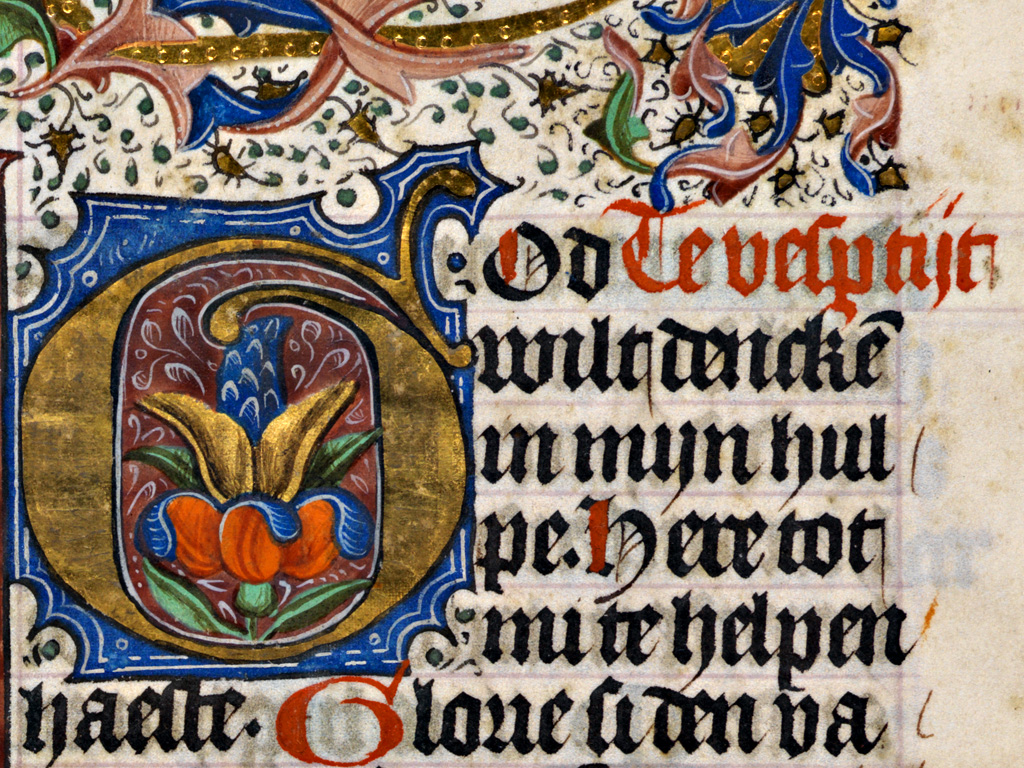 GOd Te vesꝑtijt
wilt denckē
in mijn hul
pe. Here tot
mi te helpen
haeste. Glorie si den va